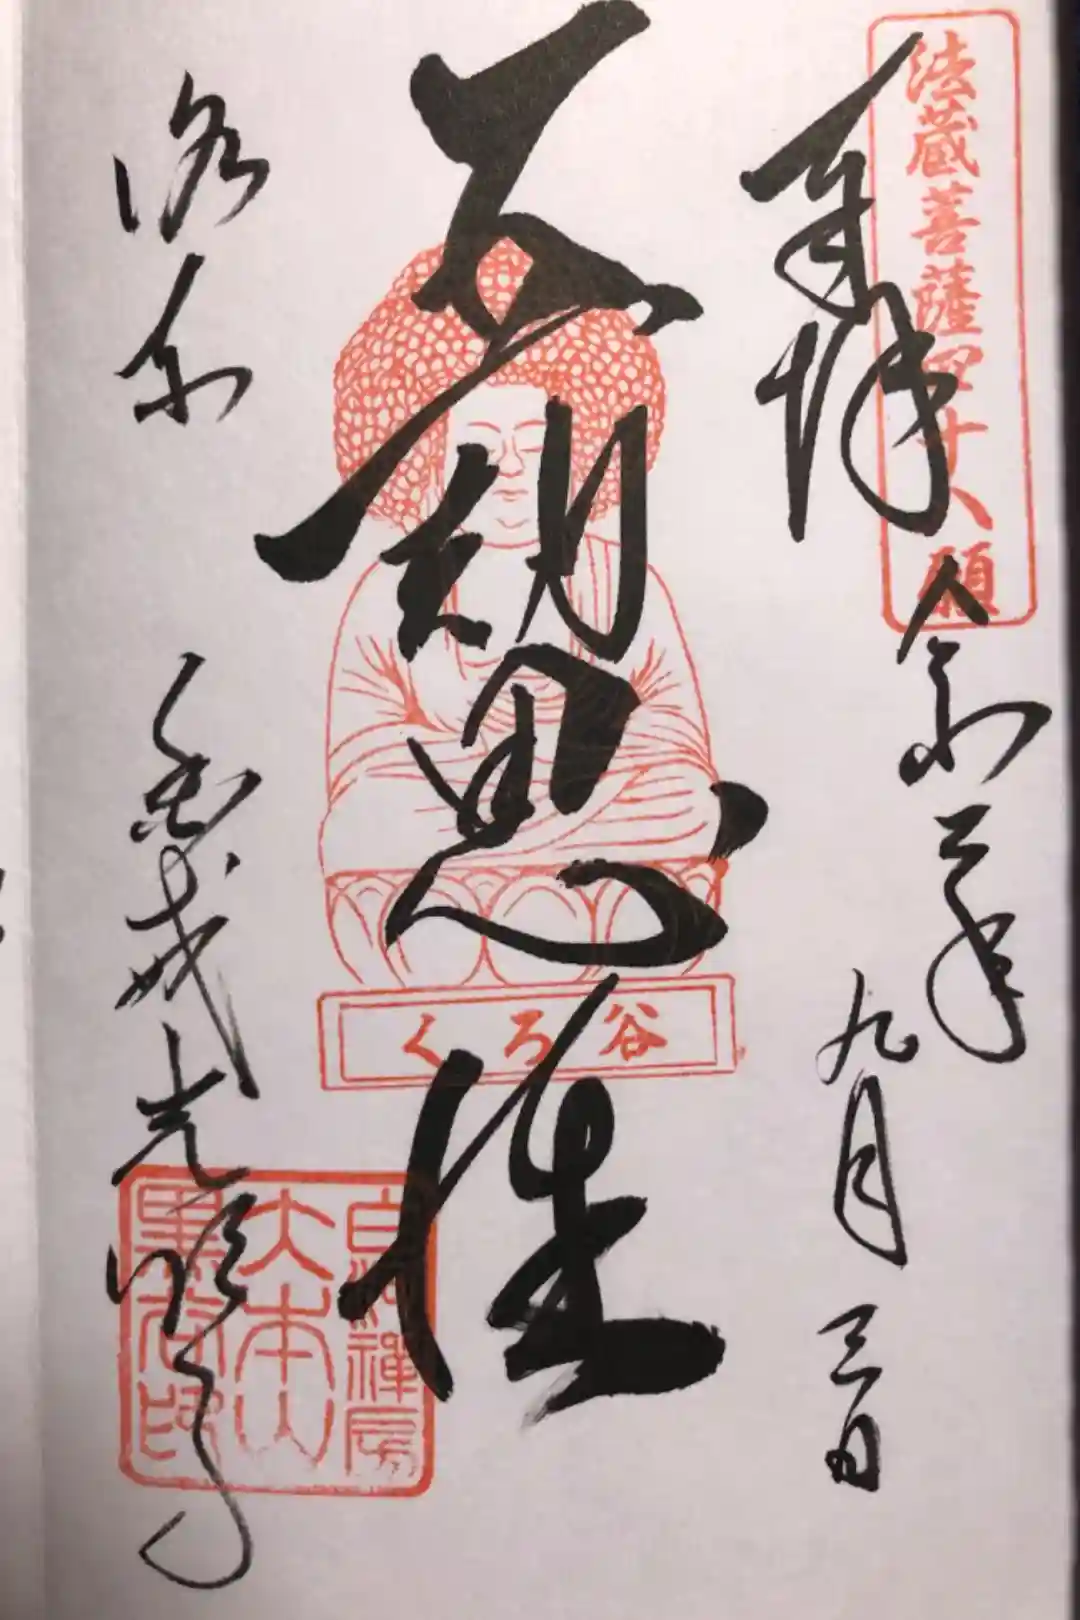 法蔵菩薩四十八願
奉拝
令和三年
九月三日
五劫思惟
くろ谷
洛東
金戒光明寺
白河禪房
大本山
黒谷印